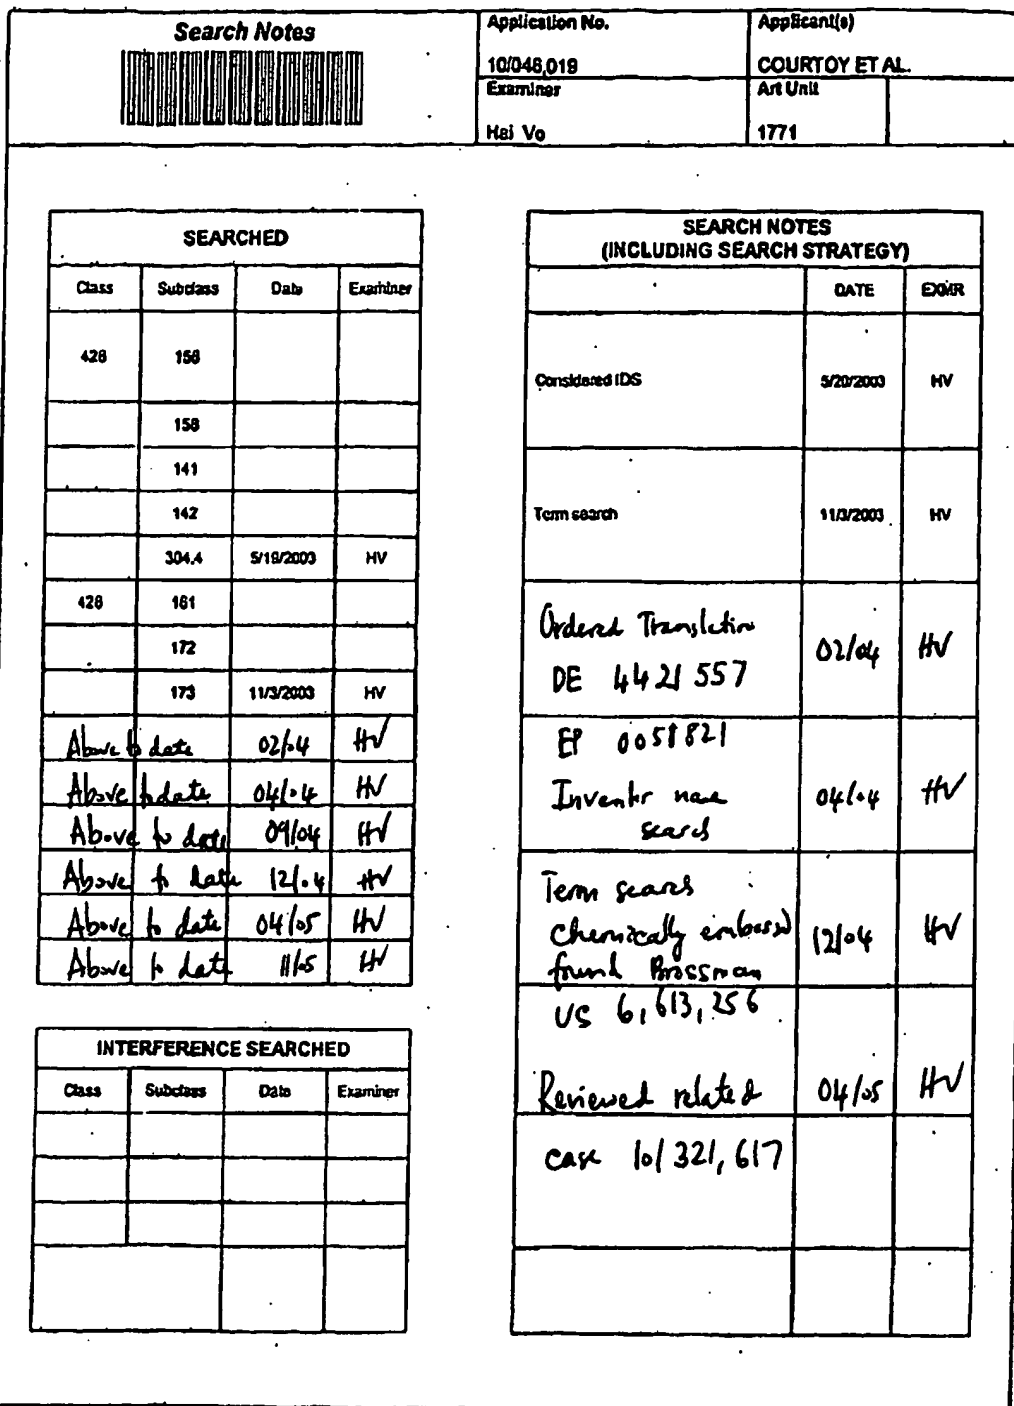 Search Notes
Application No.
Applicant(s)
10/046,019
COURTOY ET AL.
Examiner
Art Unit
Hai Vo
1771
SEARCHED
Class Subclass Date Examiner
428 156
158
141
142
304.4 5/19/2003 HV
428 161
172
173 11/3/2003 HV
Above to date 02/04 HV
Above to date 04/04 HV
Above to date 09/04 HV
Above to date 12/04 HV
Above to date 04/05 HV
Above to date 11/05 HV
INTERFERENCE SEARCHED
Class Subclass Date Examiner
SEARCH NOTES
(INCLUDING SEARCH STRATEGY)
DATE EXMR
Considered IDS 5/20/2003 HV
Term search 11/3/2003 HV
Ordered Translation 02/04 HV
DE 4421557
EP 0058821
Inventor name 04/04 HV
search
Term search
chemically embossed 12/04 HV
found Brossman
US 6,613,256
Reviewed related 04/05 HV
case 10/321,617